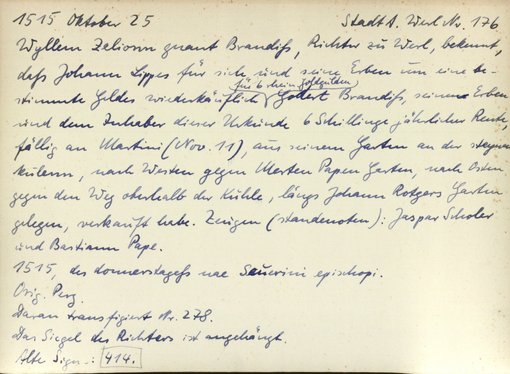 1515 Oktober 25 Stadt A. Werl Nr. 176
Wyllem Zelionn gnant Brandiss, Richter zu Werl, bekennt,
dass Johann Lippes für sich und seine Erben um eine be-
für 6 rhein. Goldgulden
stimmte Geldes wiederkäuflich Godert Brandiss, seinen Erben
und dem Inhaber dieser Urkunde 6 Schillinge jährlicher Rente,
fällig an Martini (Nov. 11), aus seinem Garten an der
nach Westen gegen Merten Papen Garten, nach Osten
gegen den Weg oberhalb der Kuhle, längs Johann Rotgers Garten
gelegen, verkauft habe. Zeugen (standenoten): Jaspar Scholer
und Bastiann Pape.
1515, des donnerstagess nae Seuerini epischopi.
Orig. Perg.
Daran transfigiert Nr. 278.
Das Siegel des Richters ist angehängt.
Alte Sign.: 414.